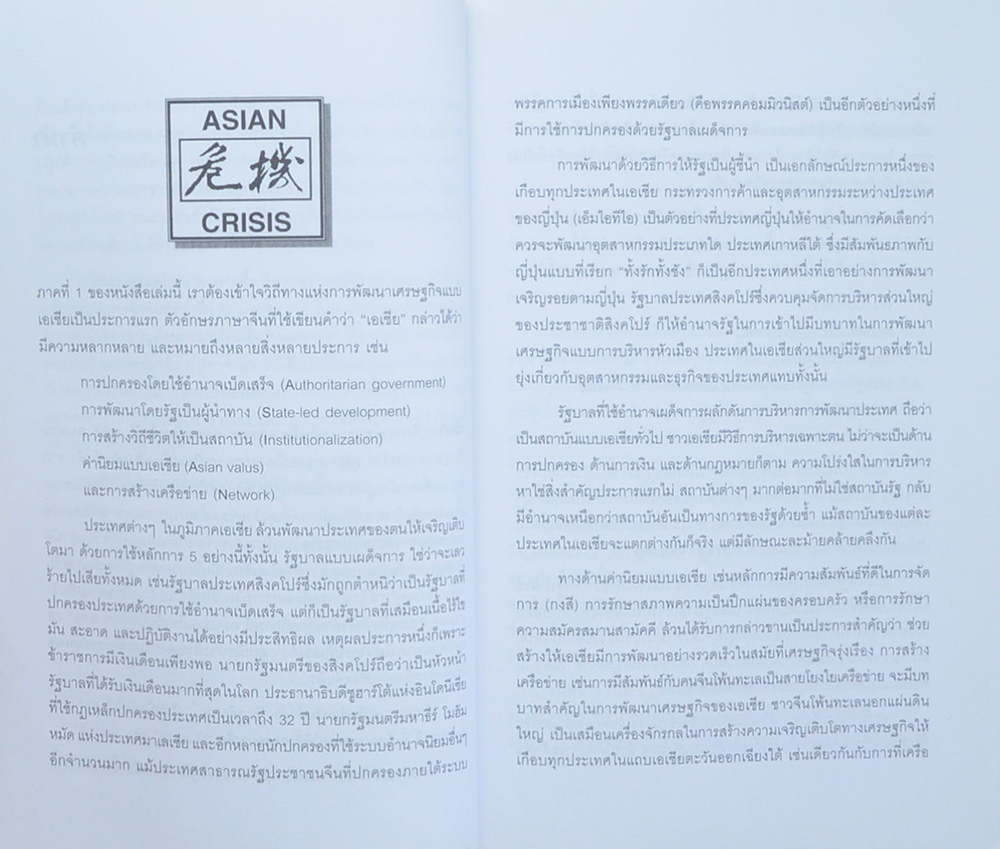 ASIAN
危機
CRISIS
ภาคที่ 1 ของหนังสือเล่มนี้ เราต้องเข้าใจวิถีทางแห่งการพัฒนาเศรษฐกิจแบบ
เอเชียเป็นประการแรก ตัวอักษรภาษาจีนที่ใช้เขียนคำว่า "เอเชีย" กล่าวได้ว่า
มีความหลากหลาย และหมายถึงหลายสิ่งหลายประการ เช่น
การปกครองโดยใช้อำนาจเบ็ดเสร็จ (Authoritarian government)
การพัฒนาโดยรัฐเป็นผู้นำทาง (State-led development)
การสร้างวิถีชีวิตให้เป็นสถาบัน (Institutionalization)
ค่านิยมแบบเอเชีย (Asian valus)
และการสร้างเครือข่าย (Network)
ประเทศต่างๆ ในภูมิภาคเอเชีย ล้วนพัฒนาประเทศของตนให้เจริญเติบ
โตมา ด้วยการใช้หลักการ 5 อย่างนี้ทั้งนั้น รัฐบาลแบบเผด็จการ ใช่ว่าจะเลว
ร้ายไปเสียทั้งหมด เช่นรัฐบาลประเทศสิงคโปร์ซึ่งมักถูกตำหนิว่าเป็นรัฐบาลที่
ปกครองประเทศด้วยการใช้อำนาจเบ็ดเสร็จ แต่ก็เป็นรัฐบาลที่เสมือนเนื้อไร้ไข
มัน สะอาด และปฏิบัติงานได้อย่างมีประสิทธิผล เหตุผลประการหนึ่งก็เพราะ
ข้าราชการมีเงินเดือนเพียงพอ นายกรัฐมนตรีของสิงคโปร์ถือว่าเป็นหัวหน้า
รัฐบาลที่ได้รับเงินเดือนมากที่สุดในโลก ประธานาธิบดีซูฮาร์โต้แห่งอินโดนีเซีย
ที่ใช้กฎเหล็กปกครองประเทศเป็นเวลาถึง 32 ปี นายกรัฐมนตรีมหาธีร์ โมฮัม
หมัด แห่งประเทศมาเลเซีย และอีกหลายนักปกครองที่ใช้ระบบอำนาจนิยมอื่นๆ
อีกจำนวนมาก แม้ประเทศสาธารณรัฐประชาชนจีนที่ปกครองภายใต้ระบบ
พรรคการเมืองเพียงพรรคเดียว (คือพรรคคอมมิวนิสต์) เป็นอีกตัวอย่างหนึ่งที่
มีการใช้การปกครองด้วยรัฐบาลเผด็จการ
การพัฒนาด้วยวิธีการให้รัฐเป็นผู้ชี้นำ เป็นเอกลักษณ์ประการหนึ่งของ
เกือบทุกประเทศในเอเชีย กระทรวงการค้าและอุตสาหกรรมระหว่างประเทศ
ของญี่ปุ่น (เอ็มไอทีไอ) เป็นตัวอย่างที่ประเทศญี่ปุ่นให้อำนาจในการคัดเลือกว่า
ควรจะพัฒนาอุตสาหกรรมประเภทใด ประเทศเกาหลีใต้ ซึ่งมีสัมพันธภาพกับ
ญี่ปุ่นแบบที่เรียก "ทั้งรักทั้งชัง" ก็เป็นอีกประเทศหนึ่งที่เอาอย่างการพัฒนา
เจริญรอยตามญี่ปุ่น รัฐบาลประเทศสิงคโปร์ซึ่งควบคุมจัดการบริหารส่วนใหญ่
ของประชาชาติสิงคโปร์ ก็ให้อำนาจรัฐในการเข้าไปมีบทบาทในการพัฒนา
เศรษฐกิจแบบการบริหารหัวเมือง ประเทศในเอเชียส่วนใหญ่มีรัฐบาลที่เข้าไป
ยุ่งเกี่ยวกับอุตสาหกรรมและธุรกิจของประเทศแทบทั้งนั้น
รัฐบาลที่ใช้อำนาจเผด็จการผลักดันการบริหารการพัฒนาประเทศ ถือว่า
เป็นสถาบันแบบเอเชียทั่วไป ชาวเอเชียมีวิธีการบริหารเฉพาะตน ไม่ว่าจะเป็นด้าน
การปกครอง ด้านการเงิน และด้านกฎหมายก็ตาม ความโปร่งใสในการบริหาร
หาใช่สิ่งสำคัญประการแรกไม่ สถาบันต่างๆ มากต่อมากที่ไม่ใช่สถาบันรัฐ กลับ
มีอำนาจเหนือกว่าสถาบันอันเป็นทางการของรัฐด้วยซ้ำ แม้สถาบันของแต่ละ
ประเทศในเอเชียจะแตกต่างกันก็จริง แต่มีลักษณะละม้ายคล้ายคลึงกัน
ทางด้านค่านิยมแบบเอเชีย เช่นหลักการมีความสัมพันธ์ที่ดีในการจัด
การ (กงสี) การรักษาสภาพความเป็นปึกแผ่นของครอบครัว หรือการรักษา
ความสมัครสมานสามัคคี ล้วนได้รับการกล่าวขานเป็นประการสำคัญว่า ช่วย
สร้างให้เอเชียมีการพัฒนาอย่างรวดเร็วในสมัยที่เศรษฐกิจรุ่งเรือง การสร้าง
เครือข่าย เช่นการมีสัมพันธ์กับคนจีนโพ้นทะเลเป็นสายโยงใยเครือข่าย จะมีบท
บาทสำคัญในการพัฒนาเศรษฐกิจของเอเชีย ชาวจีนโพ้นทะเลนอกแผ่นดิน
ใหญ่ เป็นเสมือนเครื่องจักรกลในการสร้างความเจริญเติบโตทางเศรษฐกิจให้
เกือบทุกประเทศในแถบเอเชียตะวันออกเฉียงใต้ เช่นเดียวกันกับการที่เครือ